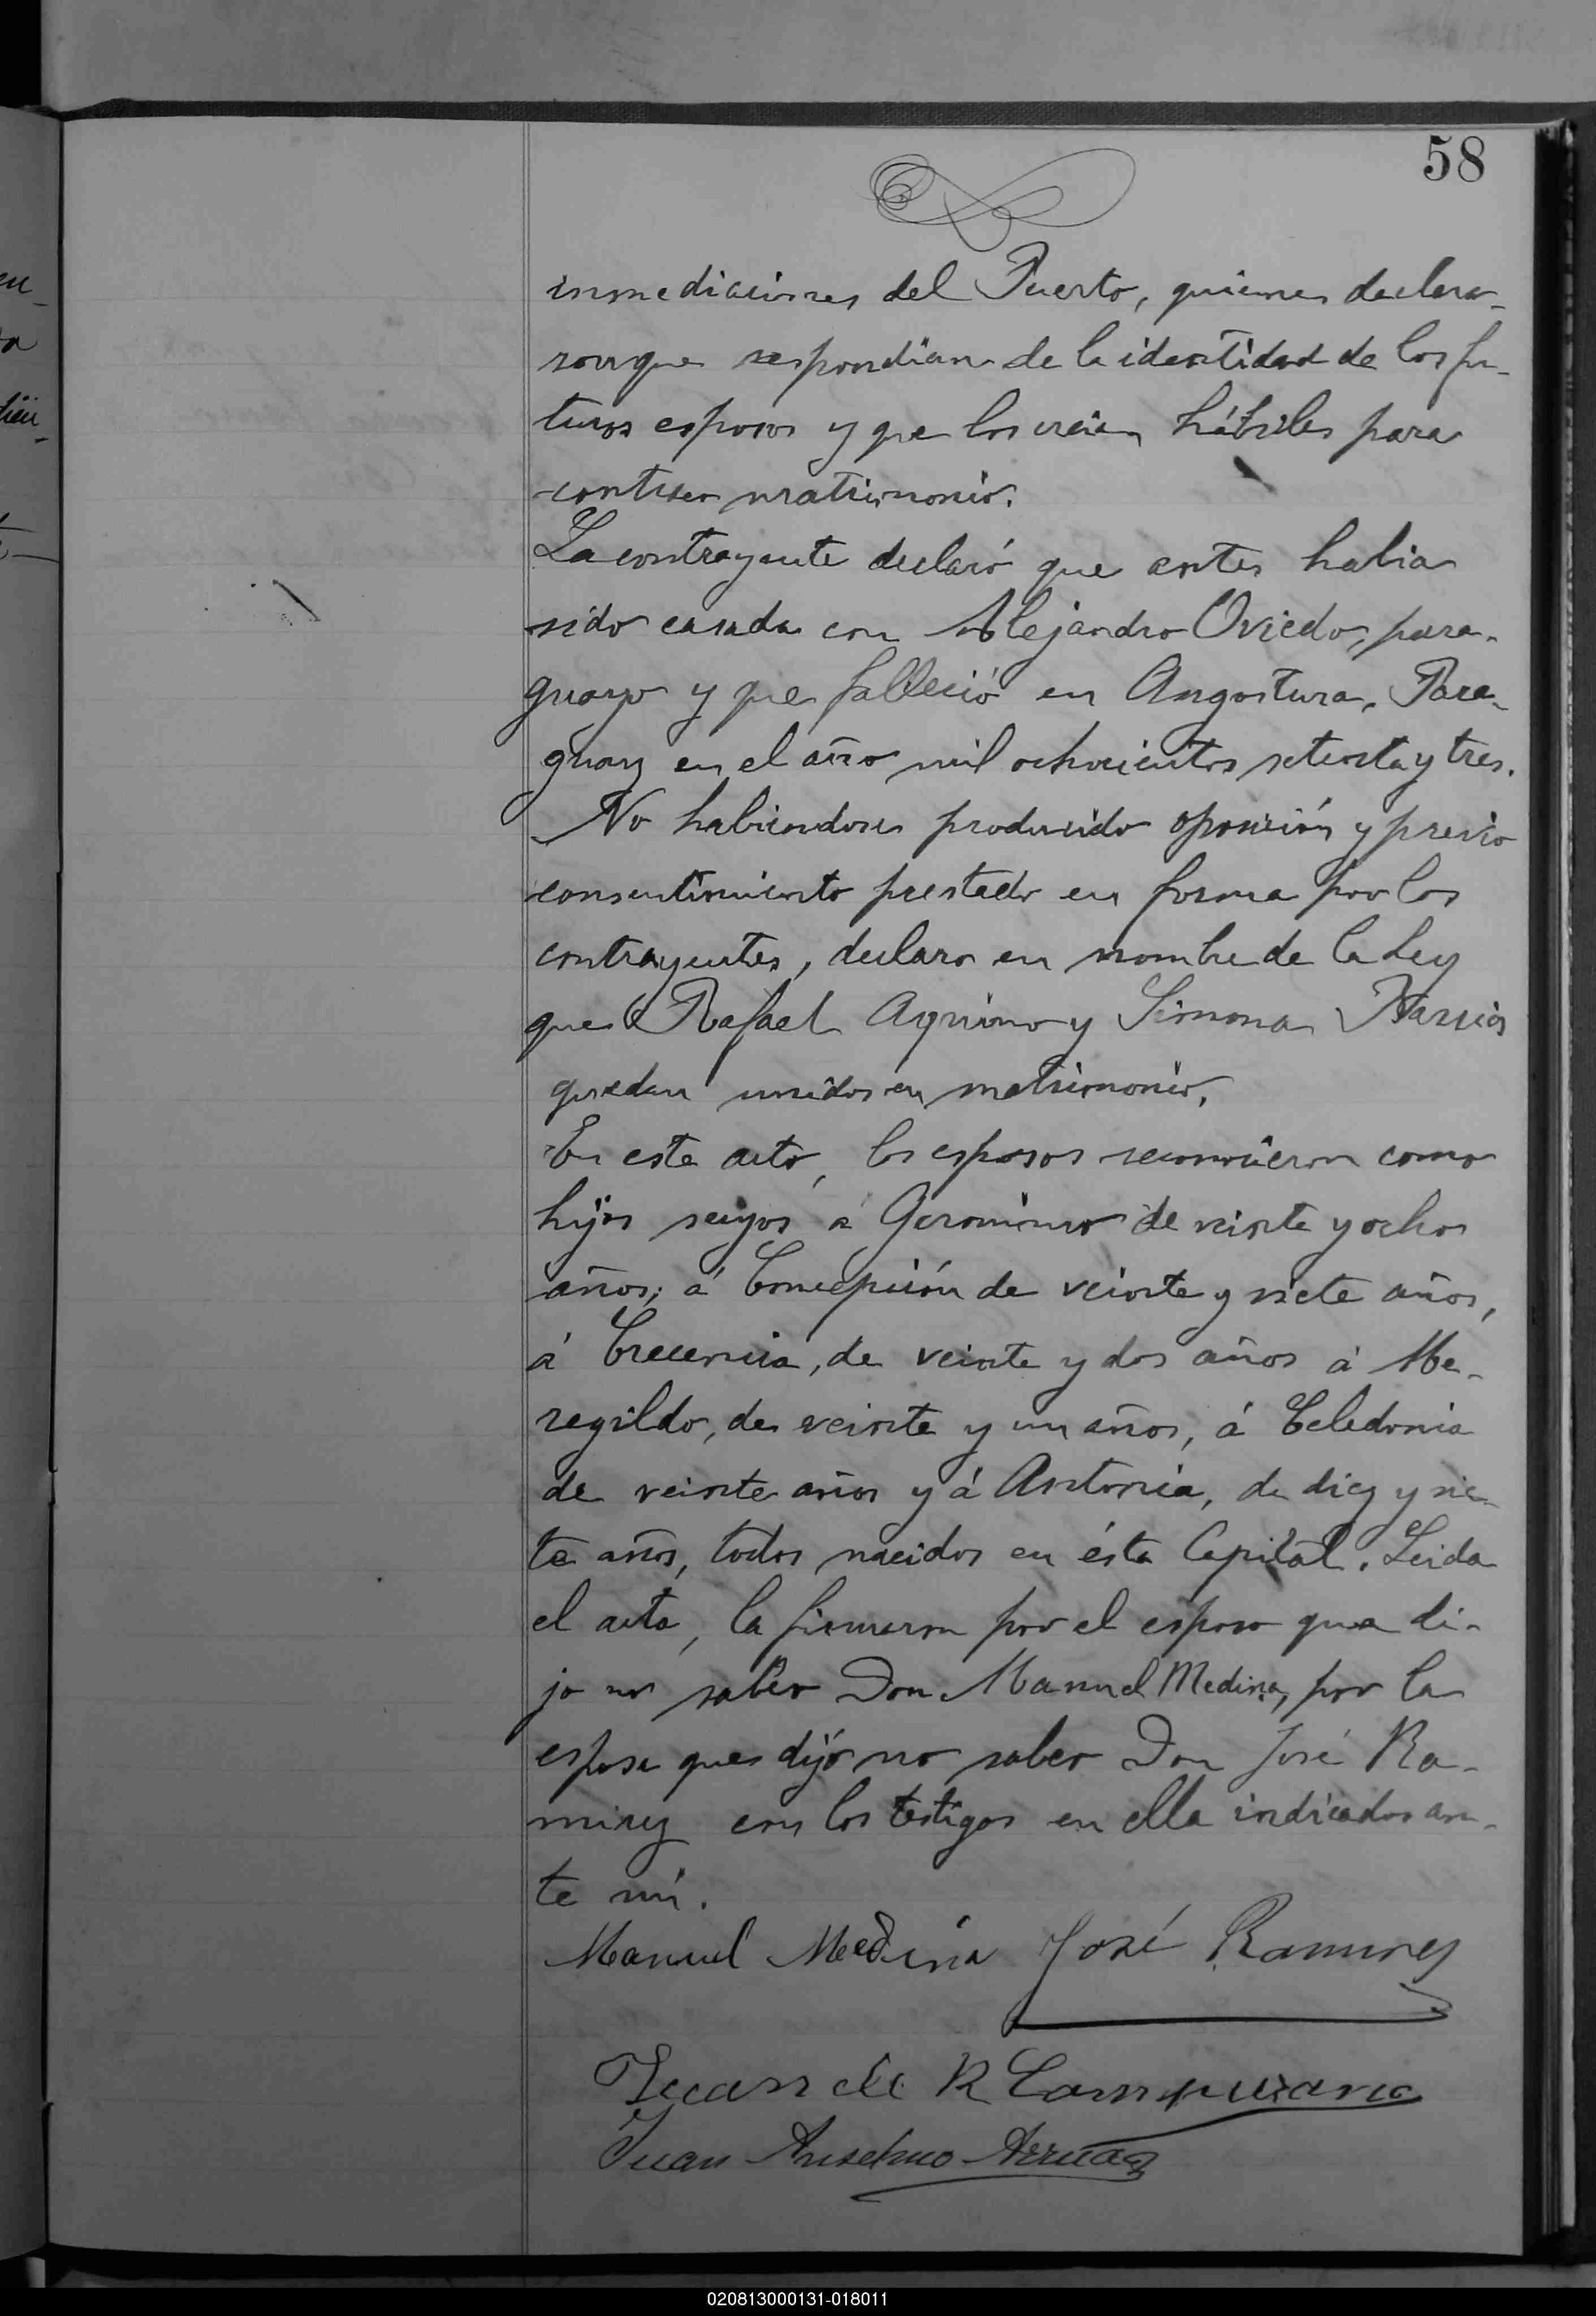 58
inmediaciones del Puerto, quienes declara-
ron que respondian de la identidad de los fu-
turos esposos y que los creian hábiles para
contraer matrimonio.
La contrayente declaró que antes habia
sido casada con Alejandro Oviedo, para-
guayo y que falleció en Angostura, Para-
guay en el año mil ochocientos setenta y tres.
No habiendose producido oposición y previo
consentimiento prestado en forma por los
contrayentes, declaro en nombre de la Ley
que Rafael Aquino y Simona Barrios
quedan unidos en matrimonio.
En este acto, los esposos reconocieron como
hijos suyos a Geronimo de veinte y ocho
años; á Concepción de veinte y siete años,
á Crecencia, de veinte y dos años á Me-
regildo, de veinte y un años, á Celedonia
de veinte años y á Antonia, de diez y sie-
te años, todos nacidos en ésta Capital. Leida
el acta, la firmaron por el esposo que di-
jo no saber Don Manuel Medina, por la
esposa que dijo no saber Don José Ra-
mirez con los testigos en ella indicados an-
te mi.
Manuel Medina José Ramirez
Juan de R Campuzano
Juan Anselmo
020813000131-018011